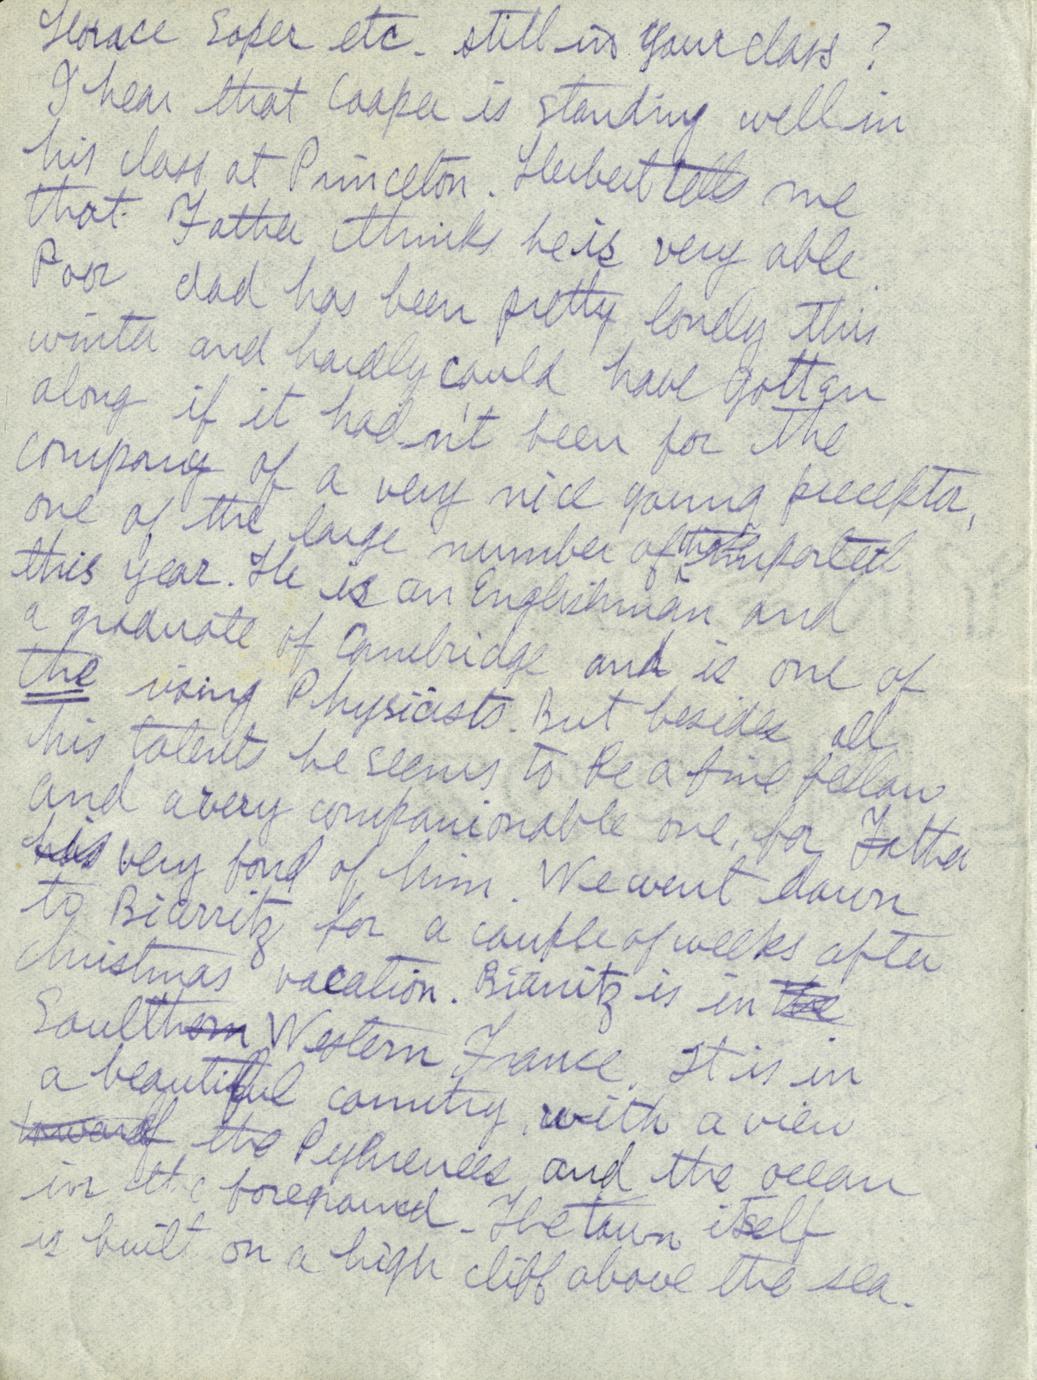 Horace Soper etc. still in your class?
I hear that Cooper is standing well in
his class at Princeton. Herbert tells me
that Father thinks he is very able.
Poor dad has been pretty lonely this
winter and hardly could have gotten
along if it hadn't been for the
company of a very nice young preceptor,
one of the large number of imported
this year. He is an Englishman and
a graduate of Cambridge and is one of
the rising Physicists. But besides all
his talents he seems to be a fine fellow
and a very companionable one, for Father
is very fond of him. We went down
to Biarritz for a couple of weeks after
Christmas vacation. Biarritz is in the
Southern Western France. It is in
a beautiful country, with a view
toward of the Pyhrenees and the ocean
in the foreground - The town itself
is built on a high cliff above the sea.